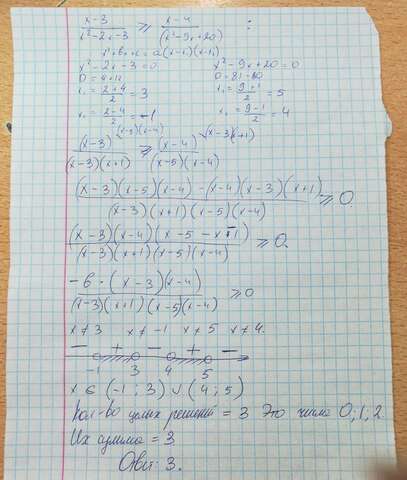 (x-3)/(x²-2x-3) ≥ (x-4)/(x²-9x+20) :
x²+bx+c = a(x-x₁)(x-x₂)
x²-2x-3=0. x²-9x+20=0
D=4+12 D=81-80
x₁=(2+4)/2=3 x₁=(9+1)/2=5
x₂=(2-4)/2=-1 x₂=(9-1)/2=4
(x-3)\(x-5)(x-4)/((x-3)(x+1)) ≥ (x-4)\(x-3)(x+1)/((x-5)(x-4))
((x-3)(x-5)(x-4)-(x-4)(x-3)(x+1))/((x-3)(x+1)(x-5)(x-4)) ≥0.
((x-3)(x-4)(x-5-x-1))/((x-3)(x+1)(x-5)(x-4)) ≥0.
(-6·(x-3)(x-4))/((x-3)(x+1)(x-5)(x-4)) ≥0
x≠3 x≠-1 x≠5 x≠4.
- + - + -
-1 3 4 5
x ∈ (-1; 3) ∪ (4; 5)
Кол-во целых решений = 3 Это числа 0; 1, 2
Их сумма = 3
Ответ: 3.